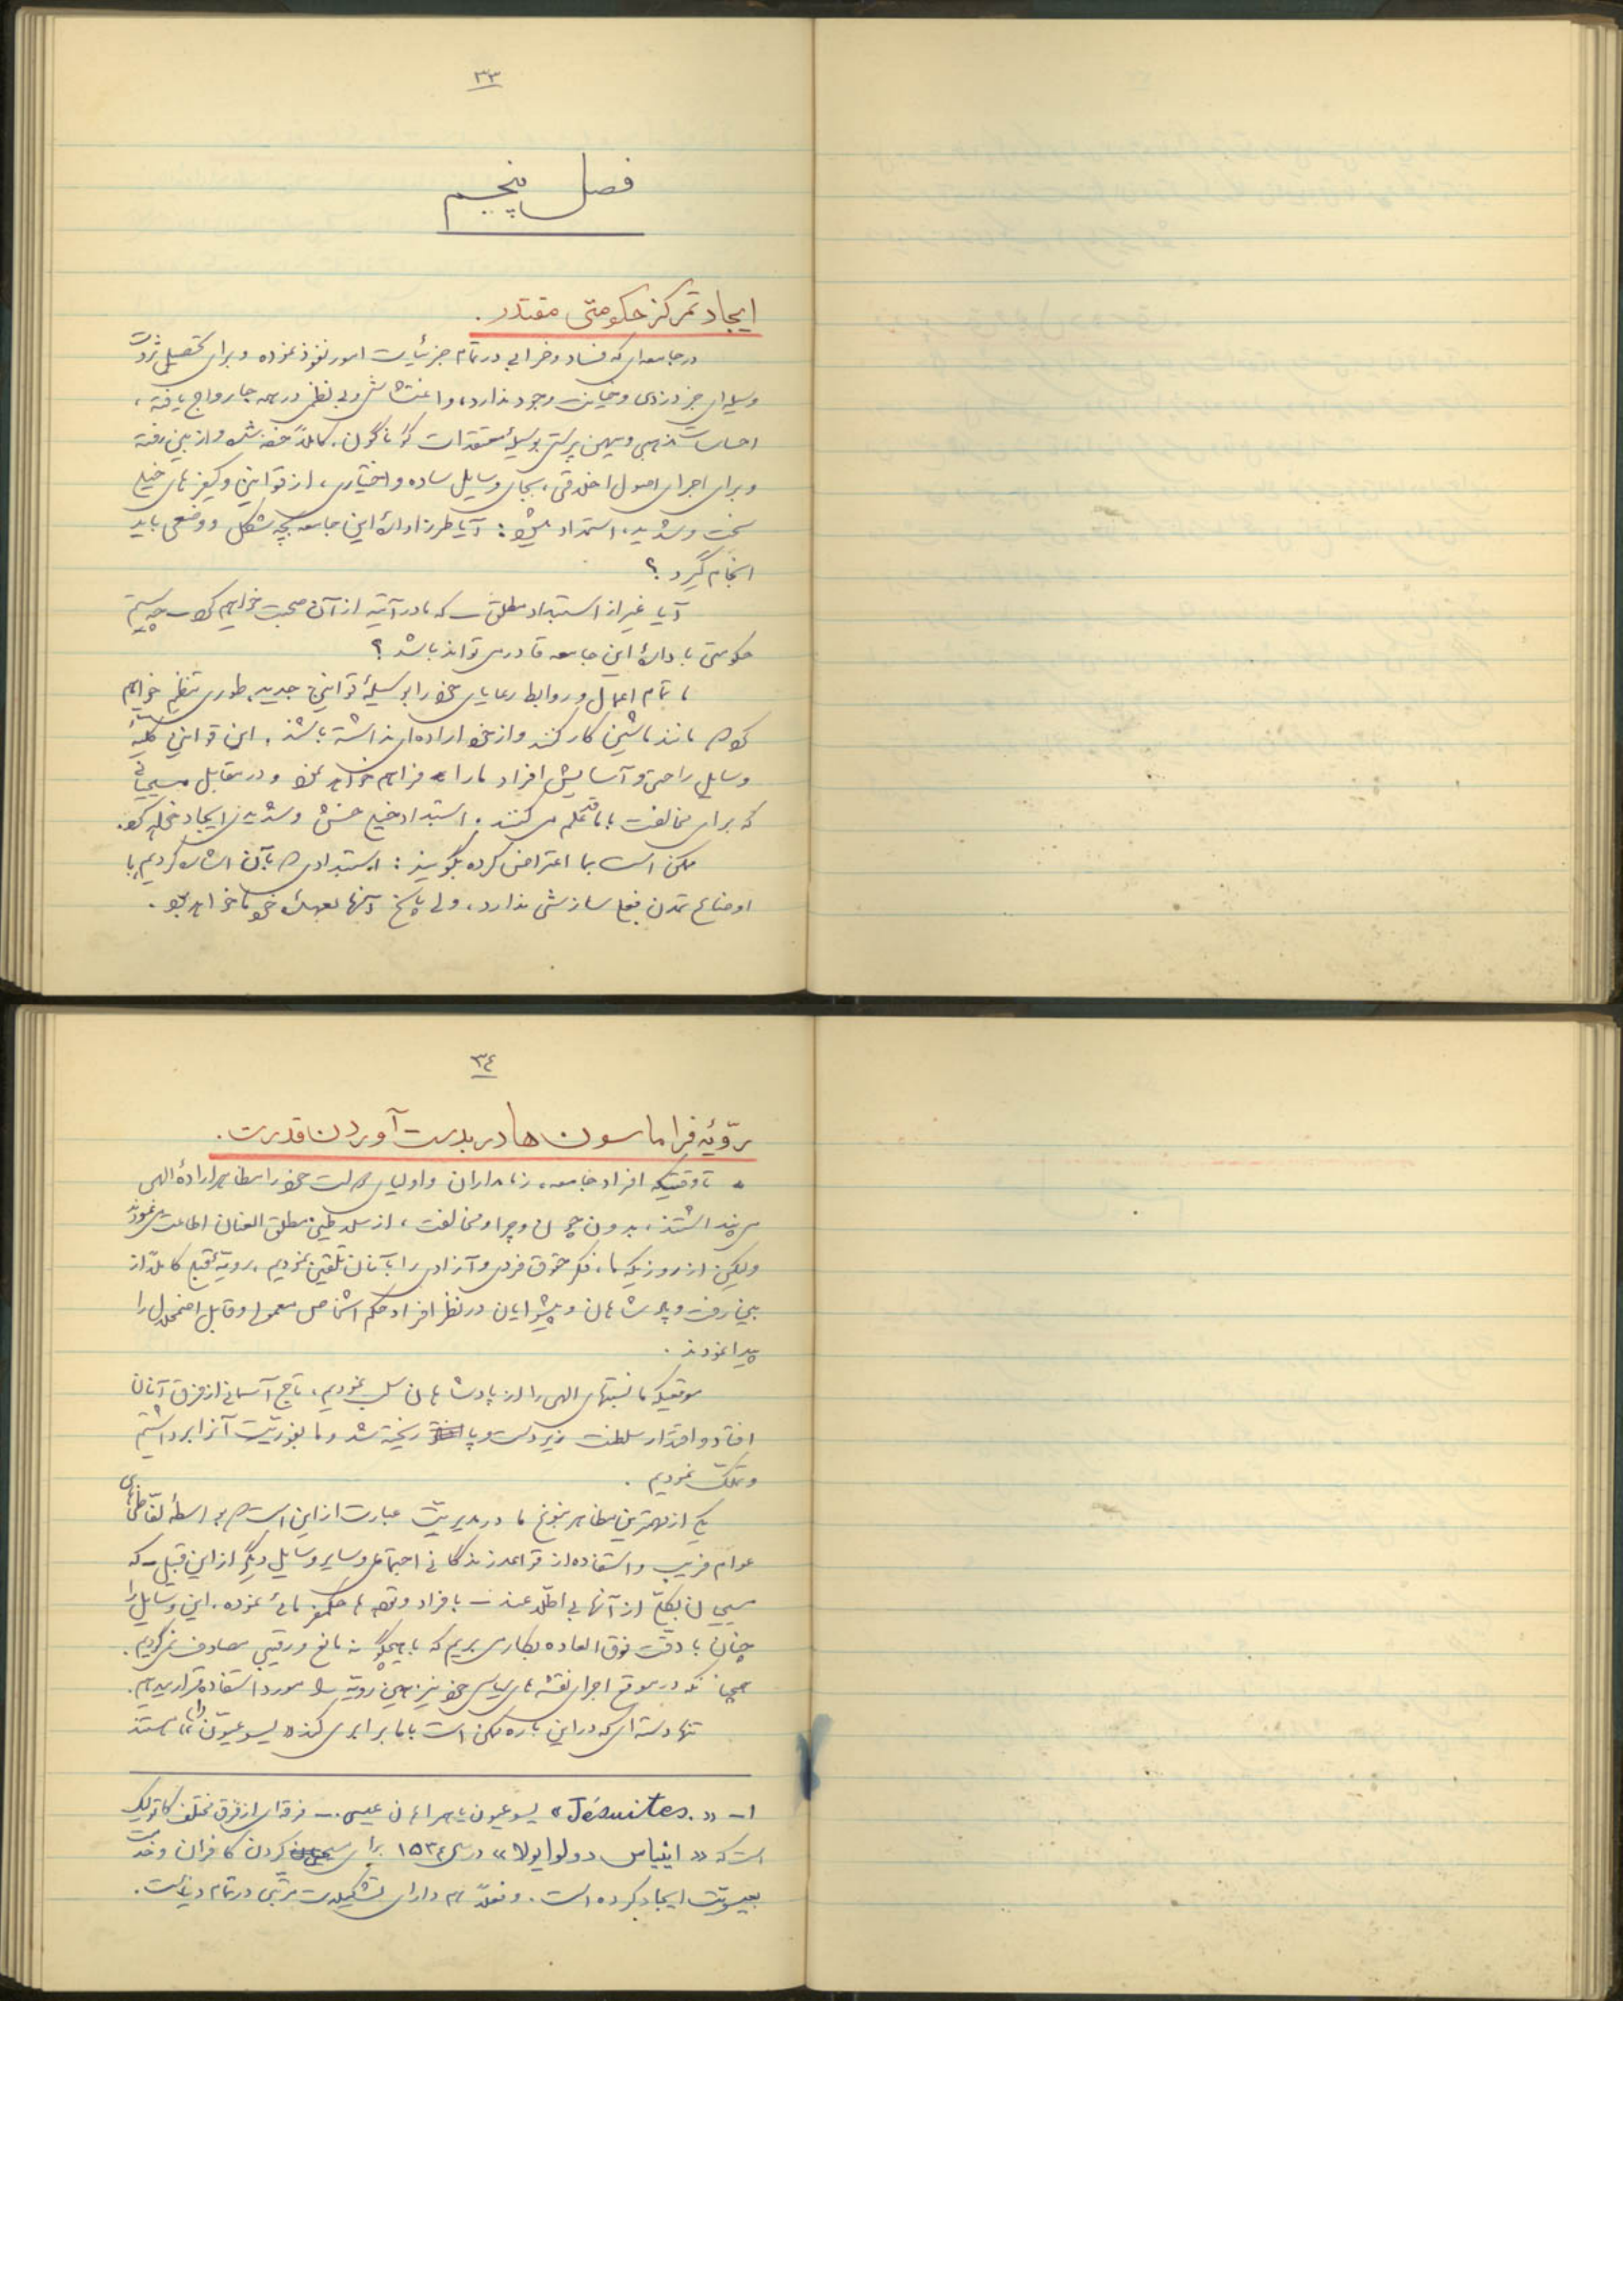 ۳۳
فصل پنجم
ایجاد تمرکز حکومتی مقتدر .
در جامعه‌ای که فساد و خرابی در تمام جزئیات امور نفوذ نموده و برای تحصیل ثروت
وسیله‌ای جز دزدی و خیانت وجود ندارد، و اغتشاش و بی نظمی در همه جا رواج یافته ،
احساسات مذهبی و میهن پرستی بوسیلهٔ معتقدات گوناگون، کاملاً خفه شده و از بین رفته
و برای اجرای اصول اخلاقی ، بجای وسایل ساده و اختیاری ، از قوانین و کیفرهای خیلی
سخت و شدید، استمداد میشود : آیا طرز ادارهٔ این جامعه بچه شکل و وضعی باید
انجام گیرد ؟
آیا غیر از استبداد مطلق ـ که ما در آتیه از آن صحبت خواهیم کرد ـ چه سیستم
حکومتی به ادارهٔ این جامعه قادر می تواند باشد ؟
ما تمام اعمال و روابط رعایای خود را بوسیلهٔ قوانین جدید، طوری تنظیم خواهیم
کرد که مانند ماشین کار کنند و از خود اراده‌ای نداشته باشند . این قوانین کلیهٔ
وسایل راحتی و آسایش افراد ما را فراهم خواهد نمود و در مقابل مسیحیانی
که برای مخالفت با ما قد علم می کنند . استبداد خیلی خشن و شدیدی ایجاد خواهد کرد.
ممکن است بما اعتراض کرده بگویند : استبدادی که بآن اشاره کردیم، با
اوضاع تمدن فعلی سازشی ندارد، ولی پاسخ آنها بعهدهٔ خود ما خواهد بود .
۳٤
رویّهٔ فراماسون ها در بدست آوردن قدرت .
تا وقتیکه افراد جامعه ، زمامداران و اولیای دولت خود را مظاهر ارادهٔ الهی
می پنداشتند ، بدون چون و چرا و مخالفت ، از سلاطین مطلق العنان اطاعت می نمودند
ولیکن از روزیکه ما ، فکر حقوق فردی و آزادی را بآنان تلقین نمودیم ، رویّهٔ قبلی کاملاً از
بین رفت و پادشاهان و پیشوایان در نظر افراد حکم اشخاص معمولی و قابل اضمحلال را
پیدا نمودند .
موقعیکه ما نسبتهای الهی را از پادشاهان سلب نمودیم ، تاج آسمانی از فرق آنان
افتاد و اقتدار سلطنت زیر دست و پا ریخته شد و ما بفوریّت آنرا برداشتیم
و تملّک نمودیم .
یکی از مهمترین مظاهر نبوغ ما در مدیریّت عبارت از این است که بواسطهٔ لفّاظی‌های
عوام فریب و استفاده از قواعد زندگانی اجتماعی و سایر وسایل دیگر از این قبیل ـ که
مسیحیان بکلّی از آنها بی اطلاعند ـ بافراد و توده ها حکمفرمائی نموده . این وسایل را
چنان با دقّت فوق العاده بکار می بریم که با هیچگونه مانع و رقیبی مصادف نمی گردیم .
همچنانکه در موقع اجرای نقشه های سیاسی خود نیز همین رویّه را مورد استفاده قرار میدهیم.
تنها دسته ای که در این باره ممکن است با ما برابری کند « یسوعیّون » (۱) هستند
۱ـ « Jésuites. » یسوعیون یا همراهان عیسی ـ فرقه ای از فرق مختلف کاتولیک
است که « اینیاس دو لوایولا » در سال ۱۵۳٤ برای مسیحی کردن کافران و خدمت
بعیسویّت ایجاد کرده است . و فعلاً هم دارای تشکیلات مرتّبی در تمام دنیاست .